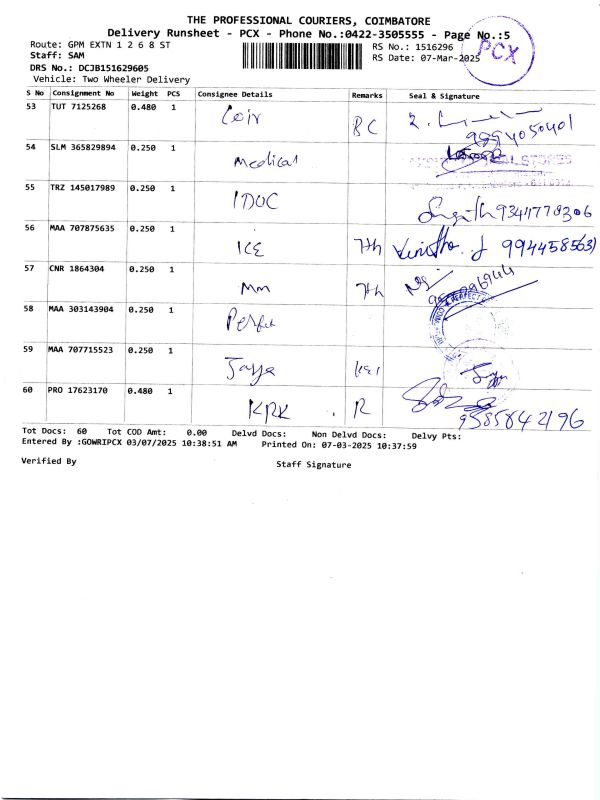 THE PROFESSIONAL COURIERS, COIMBATORE
Delivery Runsheet - PCX - Phone No.:0422-3505555 - Page No.:5
PCX
Route: GPM EXTN 1 2 6 8 ST
RS No.: 1516296
Staff: SAM
RS Date: 07-Mar-2025
DRS No.: DCJB151629605
Vehicle: Two Wheeler Delivery
S No Consignment No Weight PCS Consignee Details Remarks Seal & Signature
53 TUT 7125268 0.480 1 Coir BC 9994050401
54 SLM 365829894 0.250 1 Medical
55 TRZ 145017989 0.250 1 IDUC
56 MAA 707875635 0.250 1 ICE 7th
57 CNR 1864304 0.250 1 MM 7th
58 MAA 303143904 0.250 1 Perfect
59 MAA 707715523 0.250 1 Jaya
60 PRO 17623170 0.480 1 KRK R 9585842196
Tot Docs: 60 Tot COD Amt: 0.00 Delvd Docs: Non Delvd Docs: Delvy Pts:
Entered By :GOWRIPCX 03/07/2025 10:38:51 AM Printed On: 07-03-2025 10:37:59
Verified By
Staff Signature